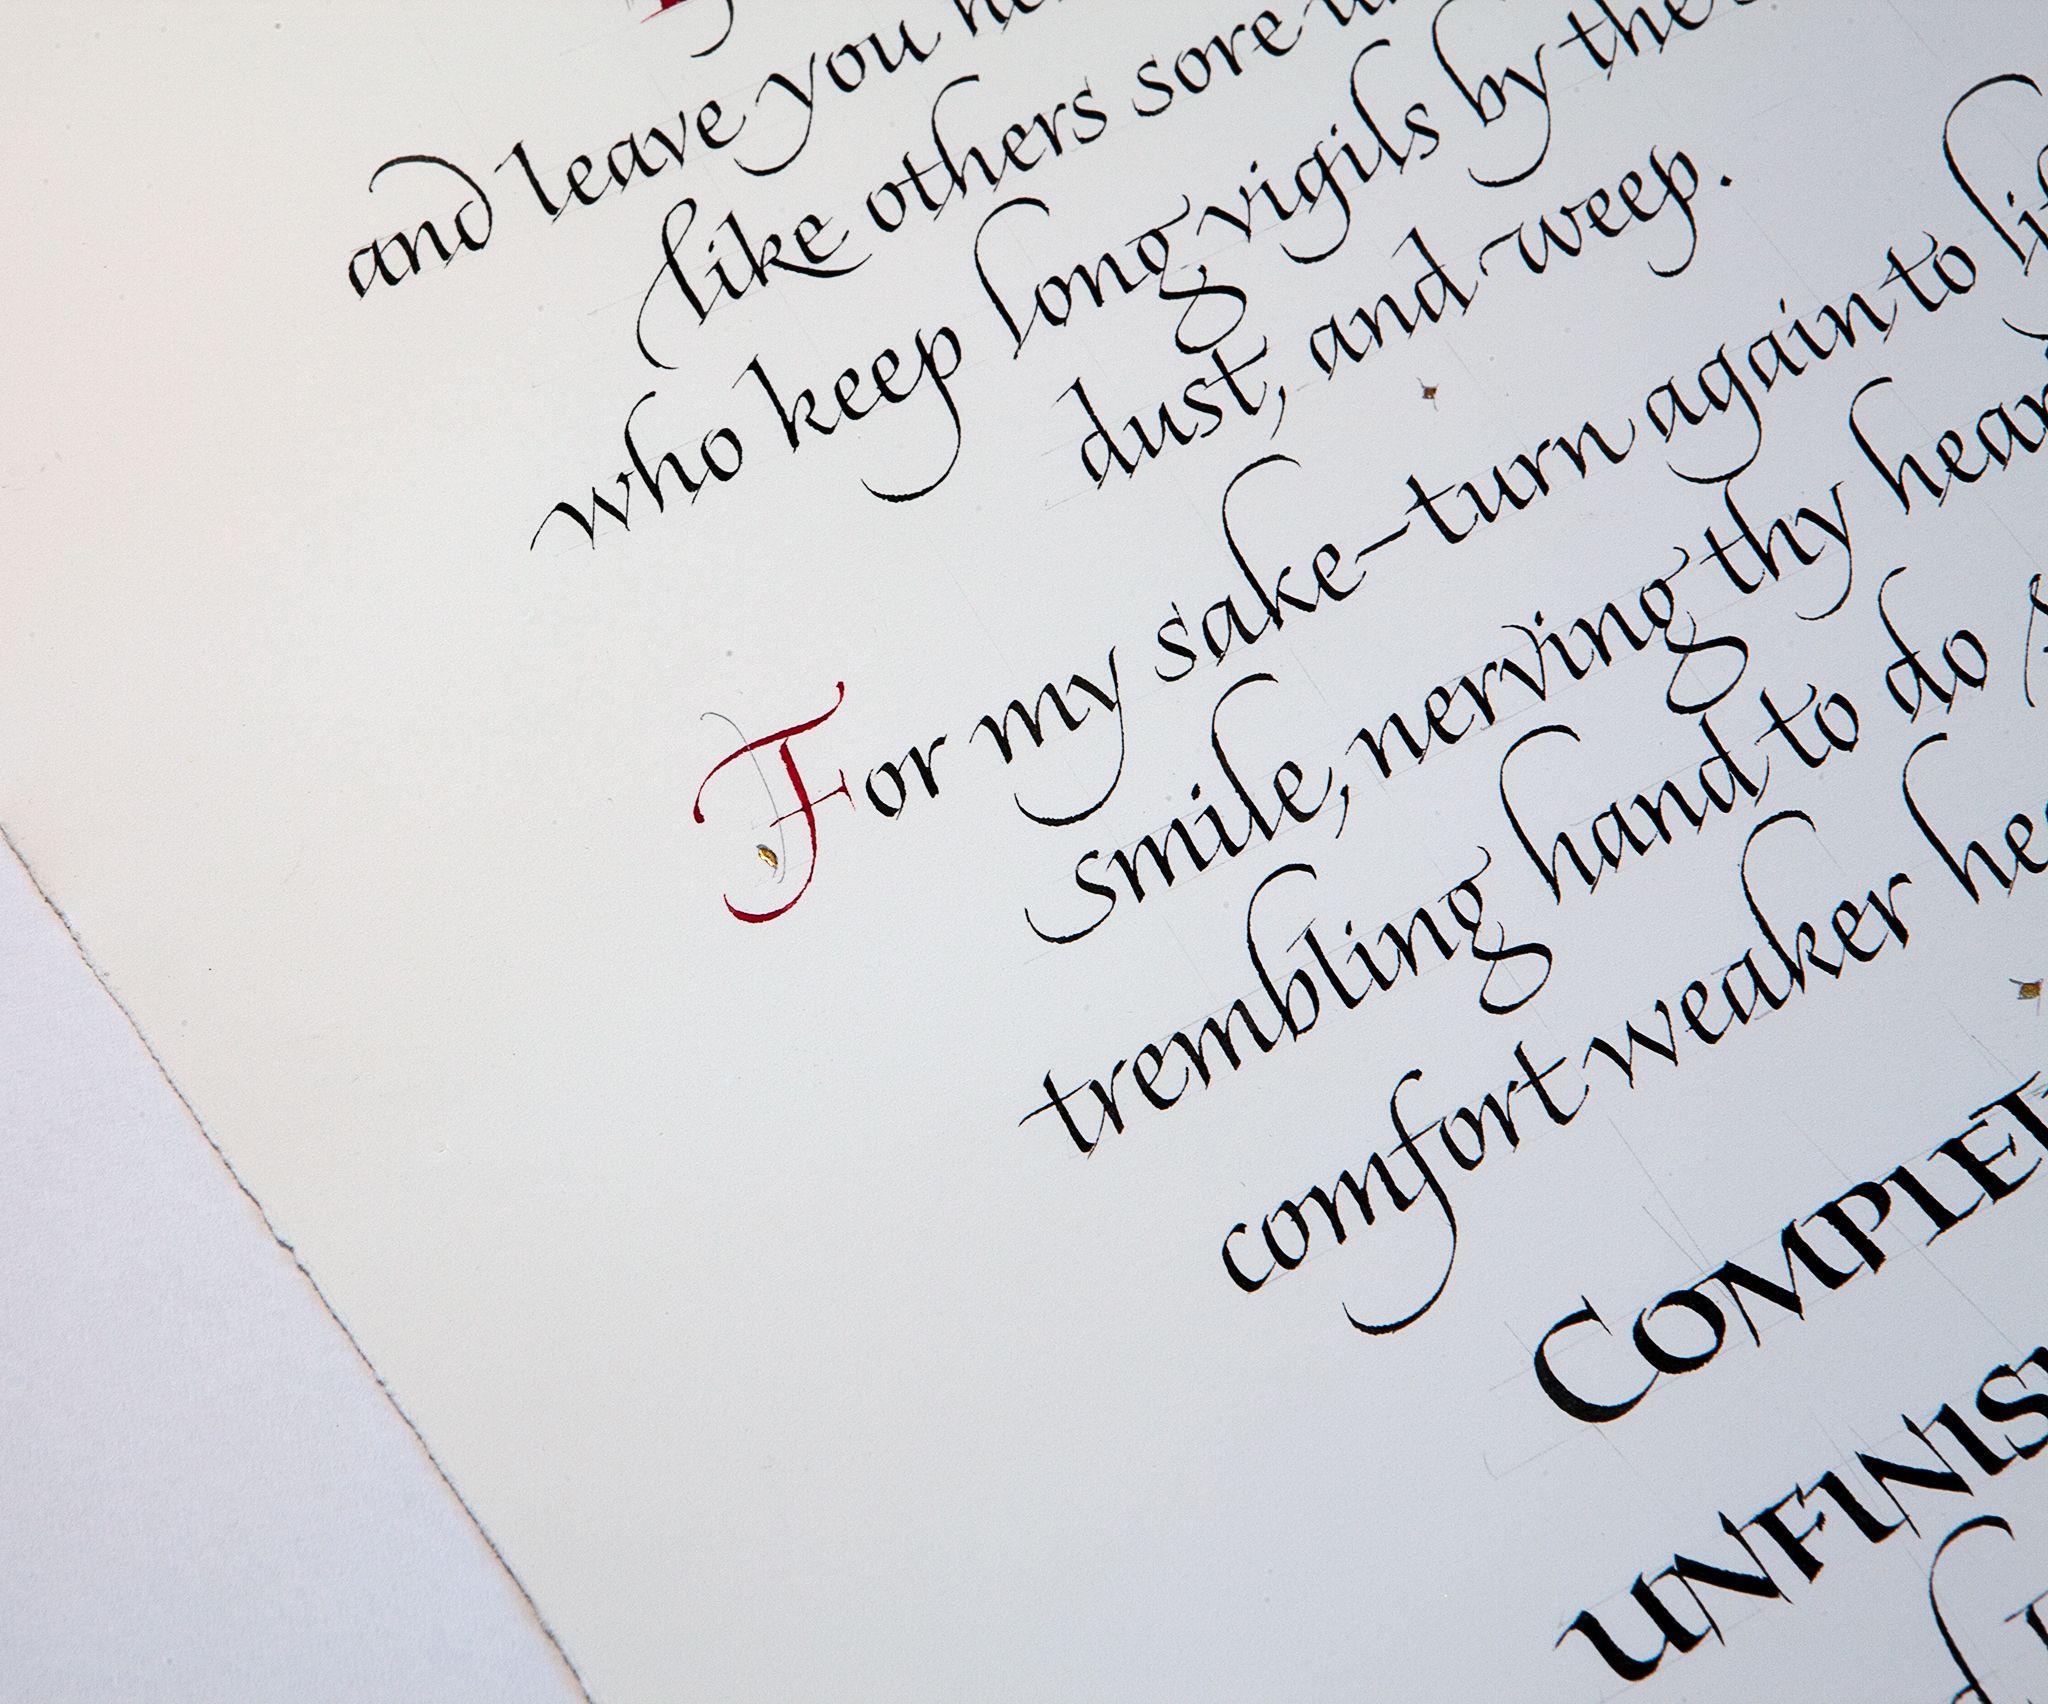 and leave you
like others sore
who keep long vigils by the
dust, and weep.
For my sake-turn again to
smile, nerving thy
trembling hand to do
comfort weaker